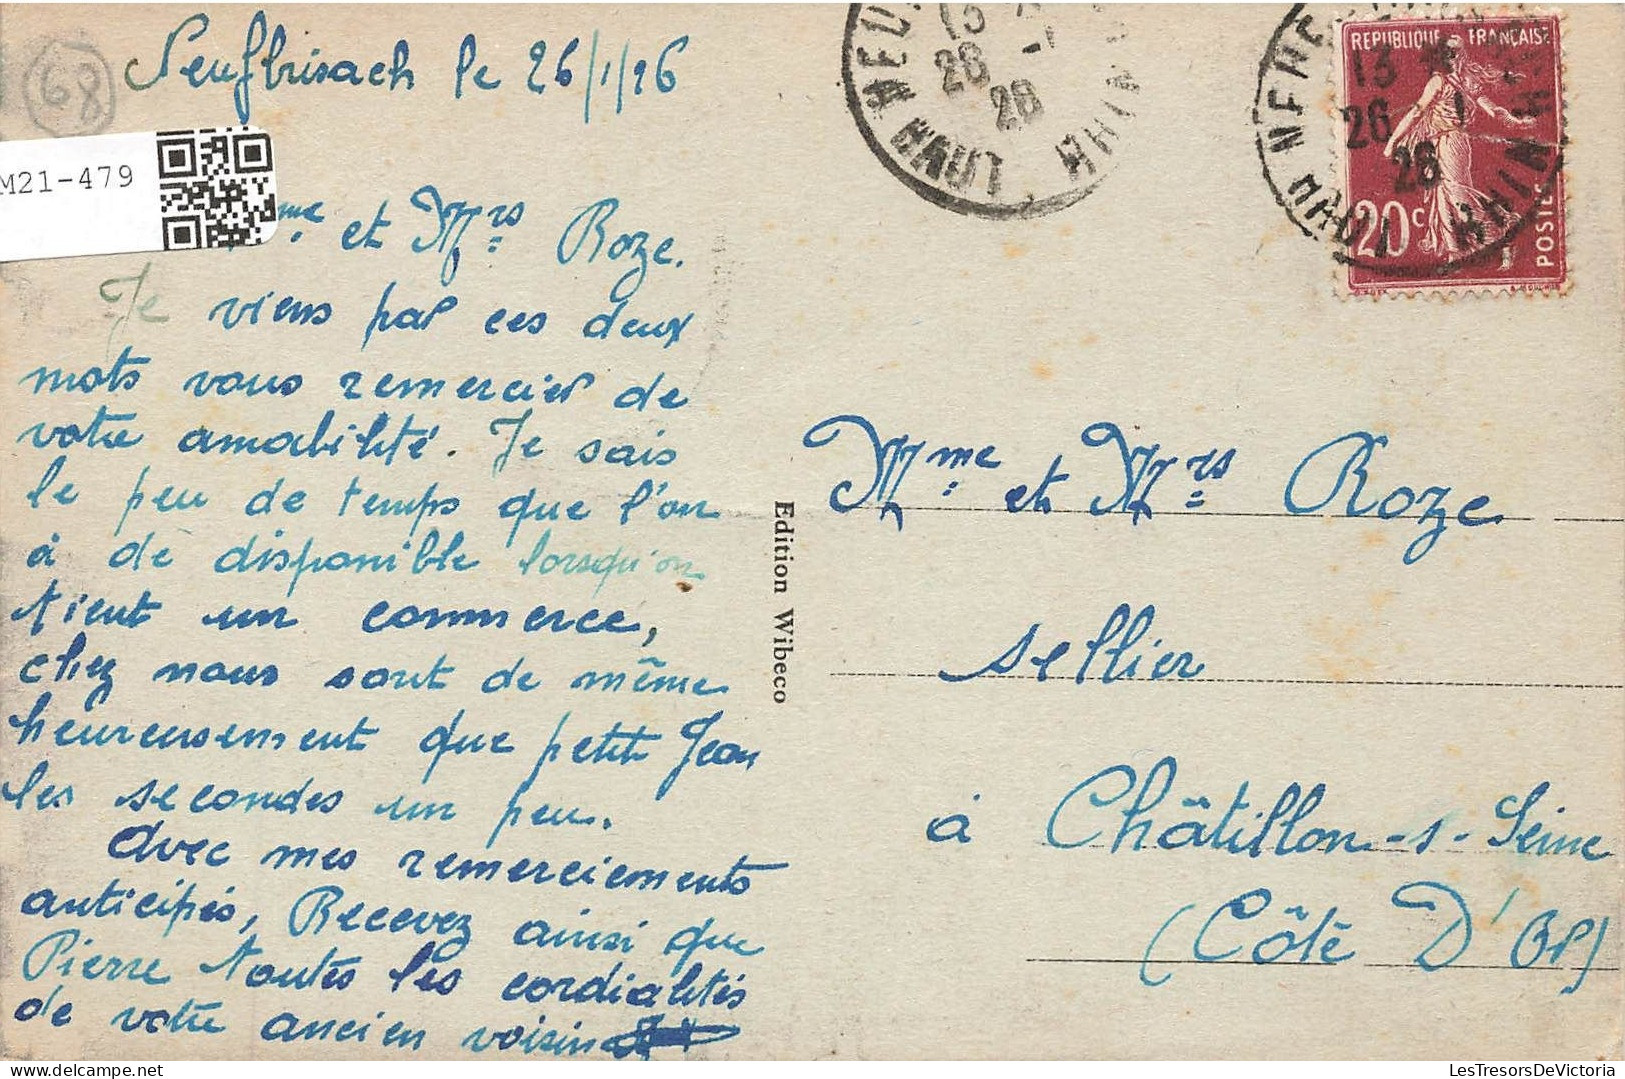 Neufbrisach le 26/1/26
68
M21-479
me et Mrs Roze.
Je viens par ces deux
mots vous remercier de
votre amabilité. Je sais
le peu de temps que l'on
à de disponible lorsqu'on
tient un commerce,
chez nous sont de même
heureusement que petit Jean
les secondes un peu.
Avec mes remerciements
anticipés, Recevez ainsi que
Pierre toutes les cordialités
de votre ancien voisin
Edition Wibeco
13
26 - 1
26
HAUT RHIN
REPUBLIQUE FRANÇAISE
13
26 1
26
HAUT RHIN
20c
POSTES
Mme et Mrs Roze
sellier
à Châtillon-s-Seine
(Côte D'Or)
LesTresorsDeVictoria